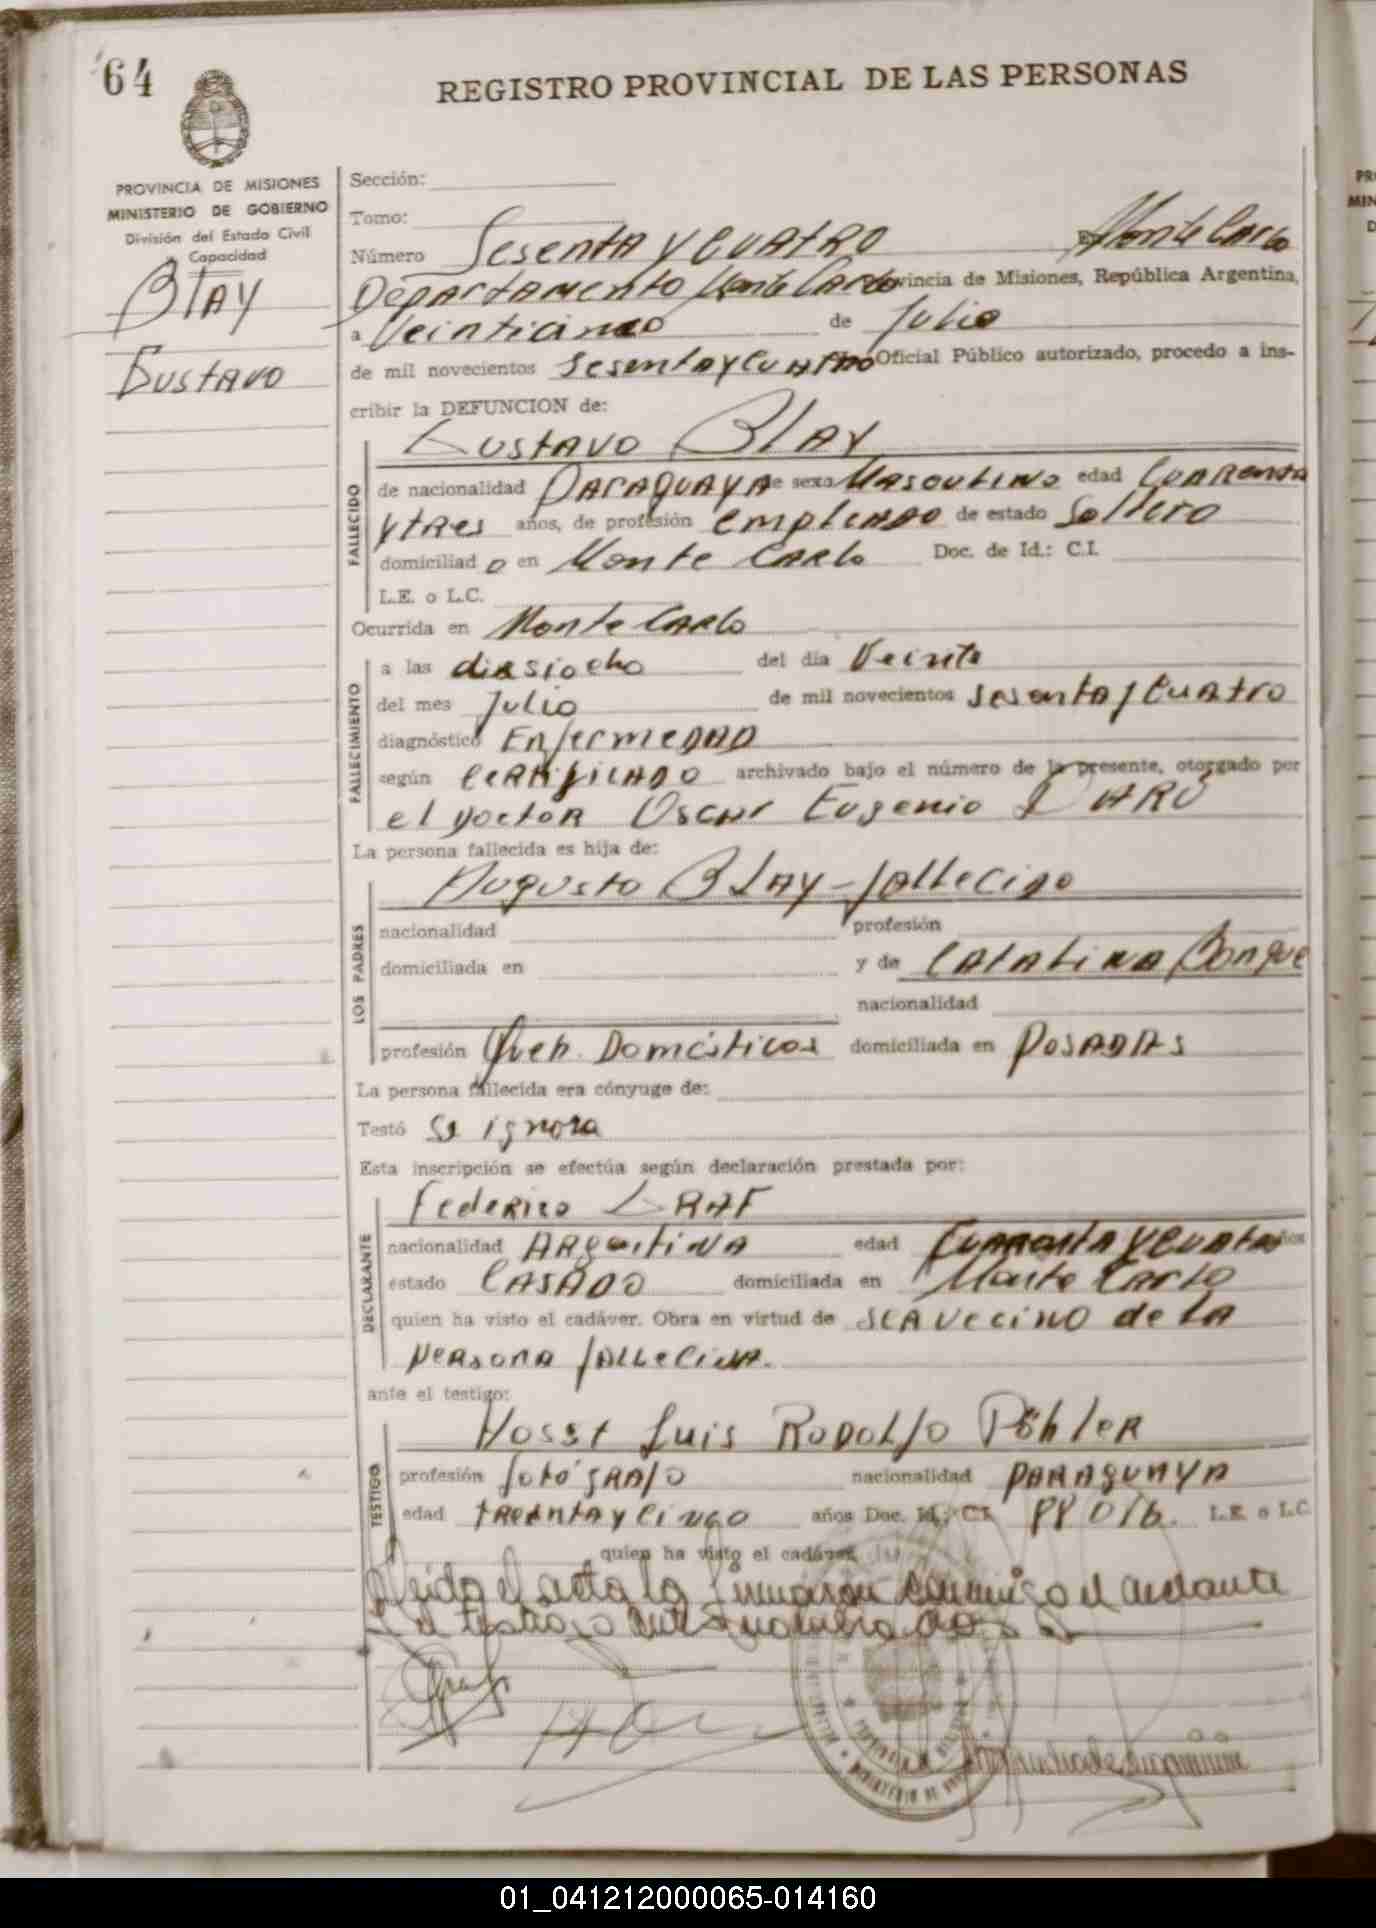 64
REGISTRO PROVINCIAL DE LAS PERSONAS
PROVINCIA DE MISIONES
MINISTERIO DE GOBIERNO
División del Estado Civil
y Capacidad
Blay
Gustavo
Sección:
Tomo:
Número Sesenta y Cuatro En Monte Carlo
Departamento Monte Carlo Provincia de Misiones, República Argentina,
a Veinticinco de Julio
de mil novecientos Sesenta y Cuatro Oficial Público autorizado, procedo a ins-
cribir la DEFUNCION de:
Gustavo Blay
FALLECIDO
de nacionalidad Paraguaya de sexo Masculino edad Cuarenta
y tres años, de profesión empleado de estado Soltero
domiciliad o en Monte Carlo Doc. de Id.: C.I.
L.E. o L.C.
Ocurrida en Monte Carlo
FALLECIMIENTO
a las diesiocho del día Veinte
del mes Julio de mil novecientos Sesenta y Cuatro
diagnóstico Enfermedad
según Certificado archivado bajo el número de la presente, otorgado por
el Doctor Oscar Eugenio Daru
La persona fallecida es hija de:
LOS PADRES
Augusto Blay - fallecido
nacionalidad profesión
domiciliada en y de Catalina Bongue
nacionalidad
profesión Queh. Domésticos domiciliada en Posadas
La persona fallecida era cónyuge de:
Testó Se ignora
Esta inscripción se efectúa según declaración prestada por:
DECLARANTE
Federico Graf
nacionalidad Argentina edad Cuarenta y Cuatro años
estado Casado domiciliada en Monte Carlo
quien ha visto el cadáver. Obra en virtud de ser vecino de la
persona fallecida.
ante el testigo:
TESTIGO
Horst Luis Rodolfo Pöhler
profesión fotógrafo nacionalidad Paraguaya
edad treinta y cinco años Doc. Id.: C.I. L.E. o L.C.
quien ha visto el cadáver.
Leída el acta la firmaron conmigo el declarante
y el testigo
01_041212000065-014160